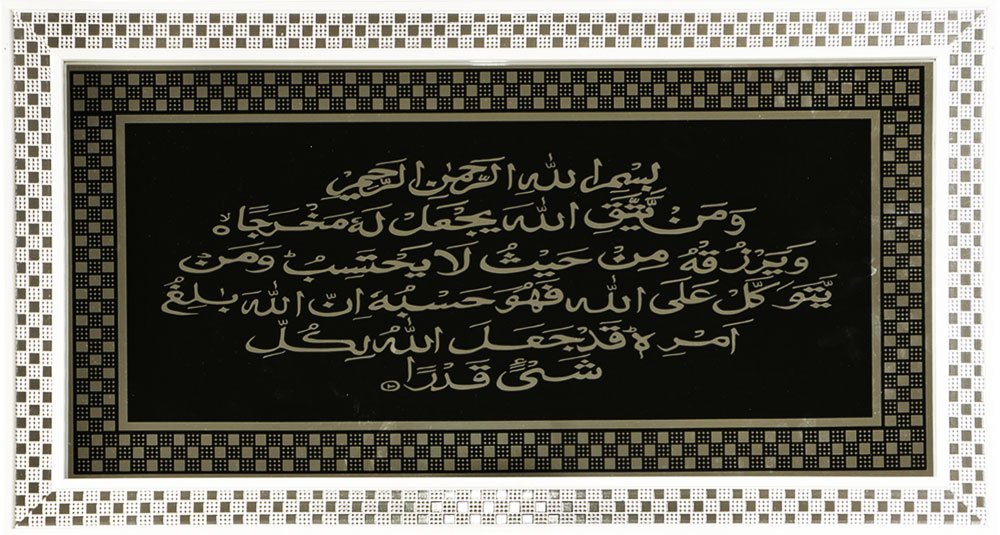 بِسْمِ اللهِ الرَّحْمٰنِ الرَّحِيْمِ
وَمَنْ يَّتَّقِ اللهَ يَجْعَلْ لَهٗ مَخْرَجًا ۙ
وَّيَرْزُقْهُ مِنْ حَيْثُ لَا يَحْتَسِبُ ؕ وَمَنْ
يَّتَوَكَّلْ عَلَى اللهِ فَهُوَ حَسْبُهٗ اِنَّ اللهَ بٰلِغُ
اَمْرِهٖ ؕ قَدْ جَعَلَ اللهُ لِكُلِّ
شَىْءٍ قَدْرًا